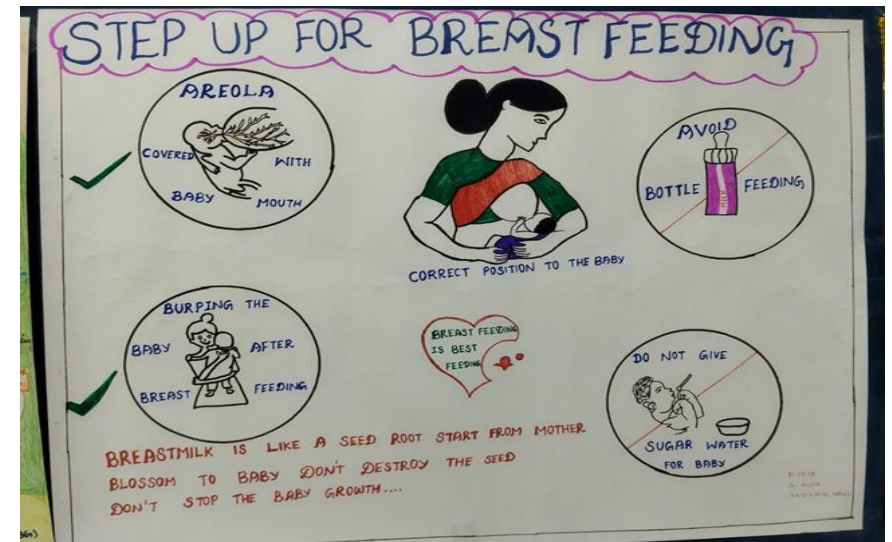 STEP UP FOR BREAST FEEDING
AREOLA
COVERED WITH
BABY MOUTH
CORRECT POSITION TO THE BABY
AVOID
BOTTLE FEEDING
MILK
BURPING THE
BABY AFTER
BREAST FEEDING
BREAST FEEDING
IS BEST
FEEDING
DO NOT GIVE
SUGAR WATER
FOR BABY
BREASTMILK IS LIKE A SEED ROOT START FROM MOTHER
BLOSSOM TO BABY DON'T DESTROY THE SEED
DON'T STOP THE BABY GROWTH....